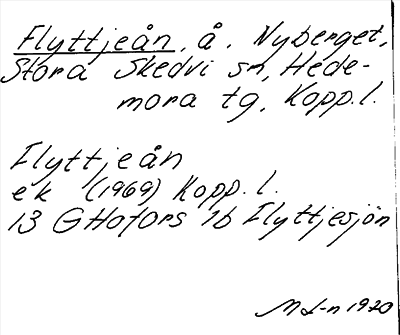 Flyttjeån, å, Nyberget,
Stora Skedvi sn, Hede-
mora tg, Kopp.l.
Flyttjeån
ek (1969) Kopp.l.
13 G Hofors 1b Flyttjesjön
M L-n 1970